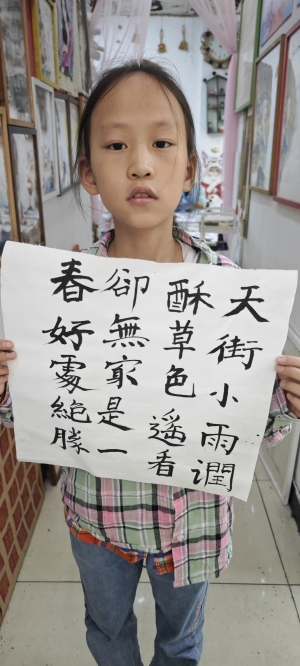 天街小雨潤
酥草色遙看
卻無最是一
春好處絶勝